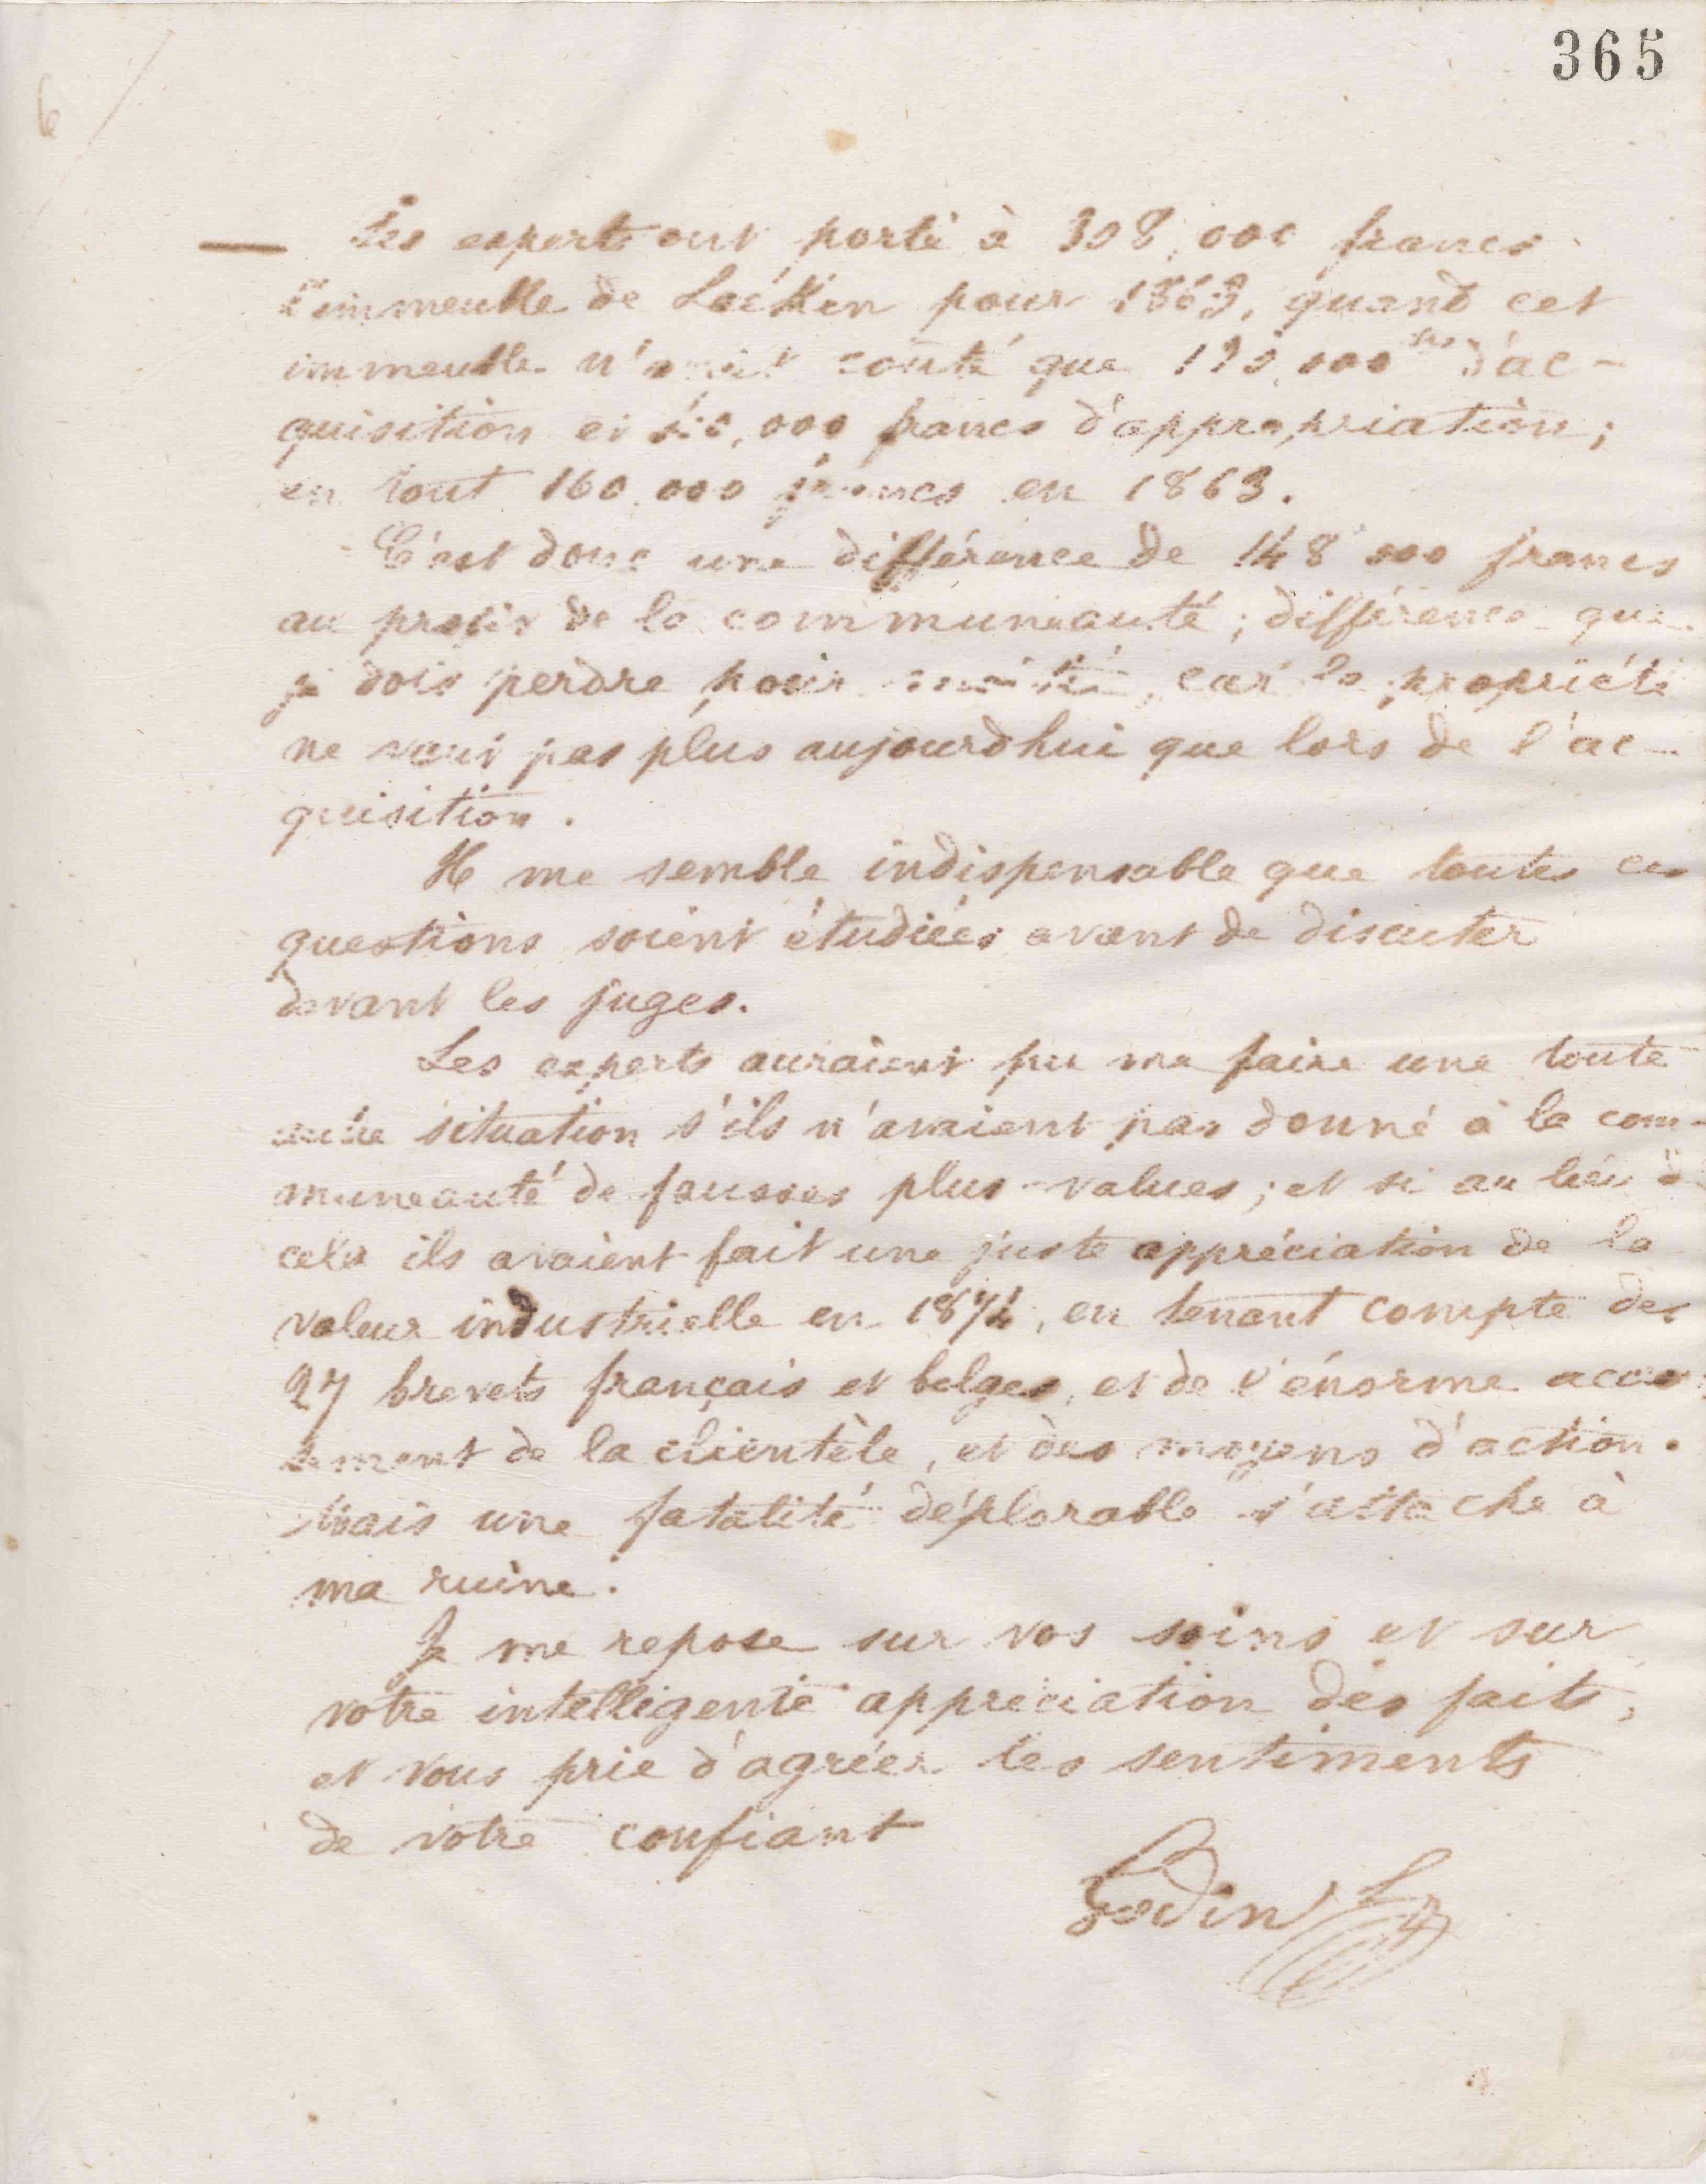 365
6
Les experts ont porté à 308,000 francs
l'immeuble de Laeken pour 1863, quand cet
immeuble n'avait couté que 110,000 frs d'ac-
quisition et 50,000 francs d'appropriation;
en tout 160,000 francs en 1863.
C'est donc une différence de 148 000 francs
au profit de la communauté; différence que
je dois perdre pour moitié, car la propriété
ne vaut pas plus aujourdhui que lors de l'ac-
quisition.
Il me semble indispensable que toutes ces
questions soient étudiées avant de discuter
devant les juges.
Les experts auraient pu me faire une toute
autre situation s'ils n'avaient pas donné à la com-
muneauté de fausses plus-values; et si au lieu de
cela ils avaient fait une juste appréciation de la
valeur industrielle en 1874, en tenant compte des
27 brevets français et belges, et de l'énorme accrois
sement de la clientèle, et des moyens d'action.
Mais une fatalité déplorable s'attache à
ma ruine.
Je me repose sur vos soins et sur
votre intelligente appréciation des faits,
et vous prie d'agréer les sentiments
de votre confiant
Godin